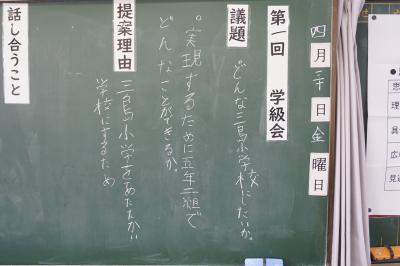 四月二十日金曜日
第一回 学級会
議題 どんな三島小学校にしたいか。
○実現するために五年二組で
どんなことができるか。
提案理由 三島小学をあたたかい
学校にするため
話し合うこと